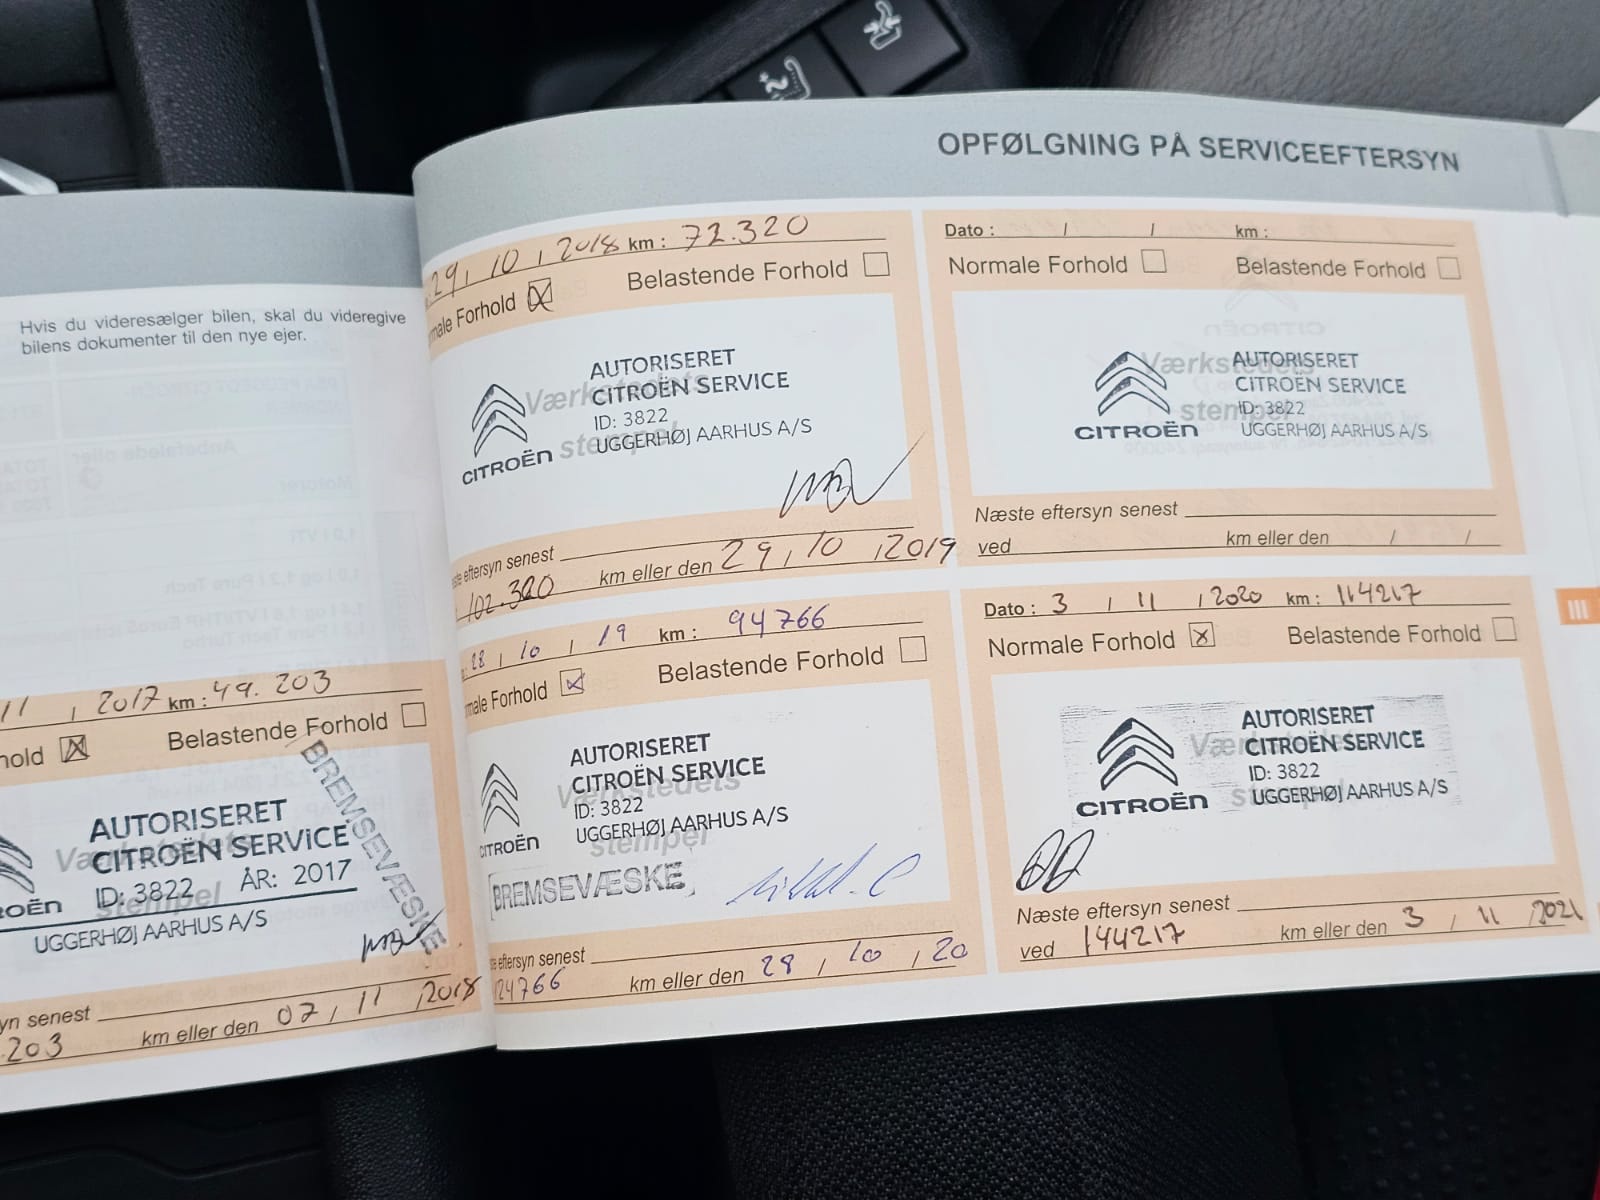 OPFØLGNING PÅ SERVICEEFTERSYN
Hvis du videresælger bilen, skal du videregive
bilens dokumenter til den nye ejer.
11 / 2017 km : 49.203
hold ☒ Belastende Forhold ☐
BREMSEVÆSKE
Værkstedets
stempel
AUTORISERET
CITROËN SERVICE
ID: 3822 ÅR: 2017
UGGERHØJ AARHUS A/S
yn senest
203 km eller den 07 / 11 / 2018
29 / 10 / 2018 km : 72.320
male Forhold ☒ Belastende Forhold ☐
Værkstedets
stempel
AUTORISERET
CITROËN SERVICE
ID: 3822
UGGERHØJ AARHUS A/S
CITROËN
te eftersyn senest
102.320 km eller den 29 / 10 / 2019
28 / 10 / 19 km : 94766
male Forhold ☒ Belastende Forhold ☐
Værkstedets
stempel
AUTORISERET
CITROËN SERVICE
ID: 3822
UGGERHØJ AARHUS A/S
CITROËN
BREMSEVÆSKE
te eftersyn senest
124766 km eller den 28 / 10 / 20
Dato : / / km :
Normale Forhold ☐ Belastende Forhold ☐
Værkstedets
stempel
AUTORISERET
CITROËN SERVICE
ID: 3822
UGGERHØJ AARHUS A/S
CITROËN
Næste eftersyn senest
ved km eller den / /
Dato : 3 / 11 / 2020 km : 114217
Normale Forhold ☒ Belastende Forhold ☐
AUTORISERET
CITROËN SERVICE
ID: 3822
UGGERHØJ AARHUS A/S
CITROËN
Næste eftersyn senest
ved 144217 km eller den 3 / 11 / 2021
III